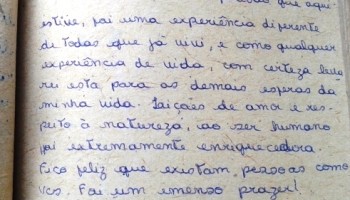 que aqui
estive, foi uma experiência diferente
de todas que já vivi, e como qualquer
experiência de vida, com certeza leva
rei esta para as demais esperas da
minha vida. Lições de amor e res-
peito à natureza, ao ser humano
foi extremamente enriquecedora.
Fico feliz que existam pessoas como
vcs. Foi um imenso prazer!